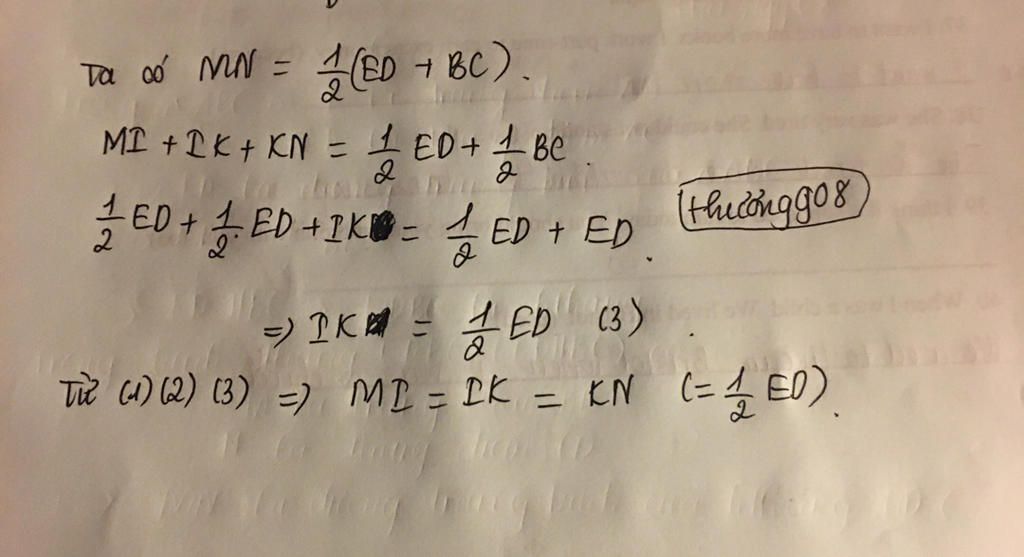 Ta có MN = 1/2 (ED + BC).
MI + IK + KN = 1/2 ED + 1/2 BC.
1/2 ED + 1/2 ED + IK = 1/2 ED + ED.
thuongg08
=> IK = 1/2 ED (3)
Từ (1) (2) (3) => MI = IK = KN (= 1/2 ED).